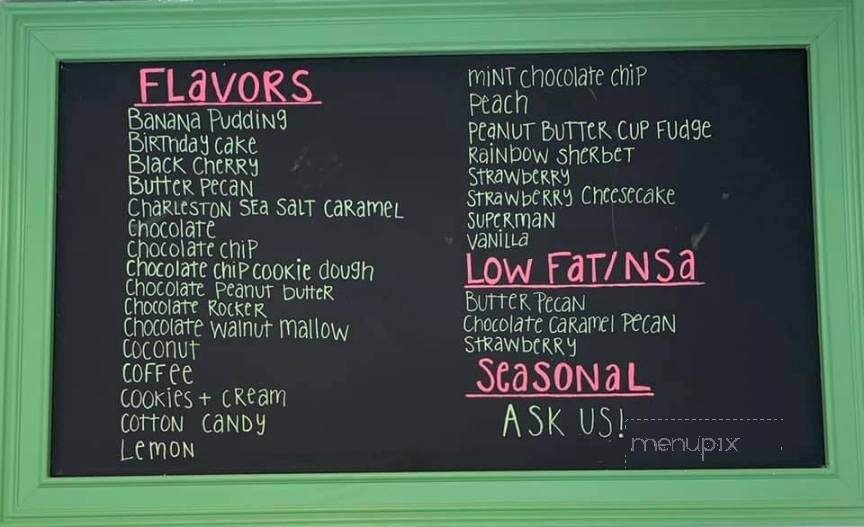 FLavors
Banana Pudding
Birthday cake
Black Cherry
Butter Pecan
Charleston Sea Salt Caramel
Chocolate
Chocolate chip
Chocolate chip cookie dough
Chocolate Peanut butter
Chocolate Rocker
Chocolate walnut mallow
Coconut
Coffee
Cookies + Cream
Cotton Candy
Lemon
Mint chocolate chip
Peach
Peanut Butter Cup Fudge
Rainbow Sherbet
Strawberry
Strawberry Cheesecake
Superman
Vanilla
Low Fat/NSa
Butter Pecan
Chocolate Caramel Pecan
Strawberry
Seasonal
ASK US!
menupix